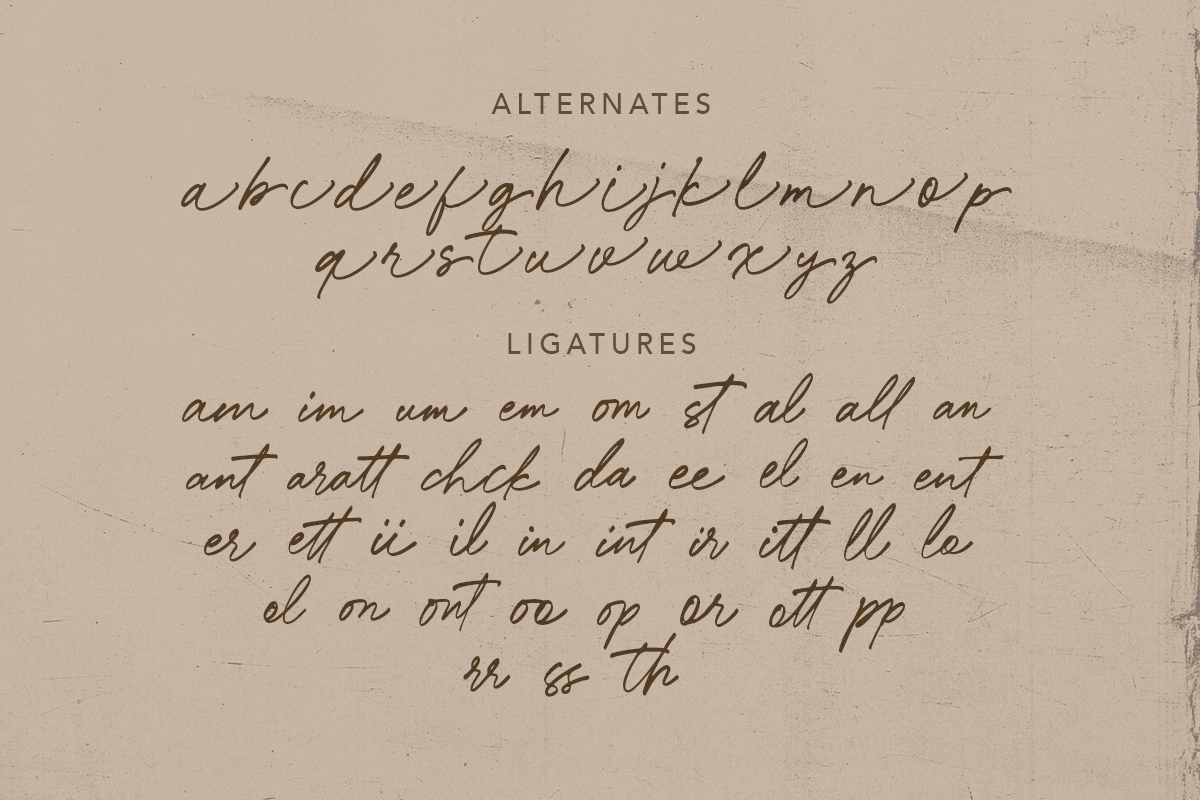 ALTERNATES
abcdefghijklmnop
qrstuvwxyz
LIGATURES
am im um em om st al all an
ant aratt chck da ee el en ent
er ett ii il in int ir itt ll lo
ol on ont oo op or ott pp
rr ss th